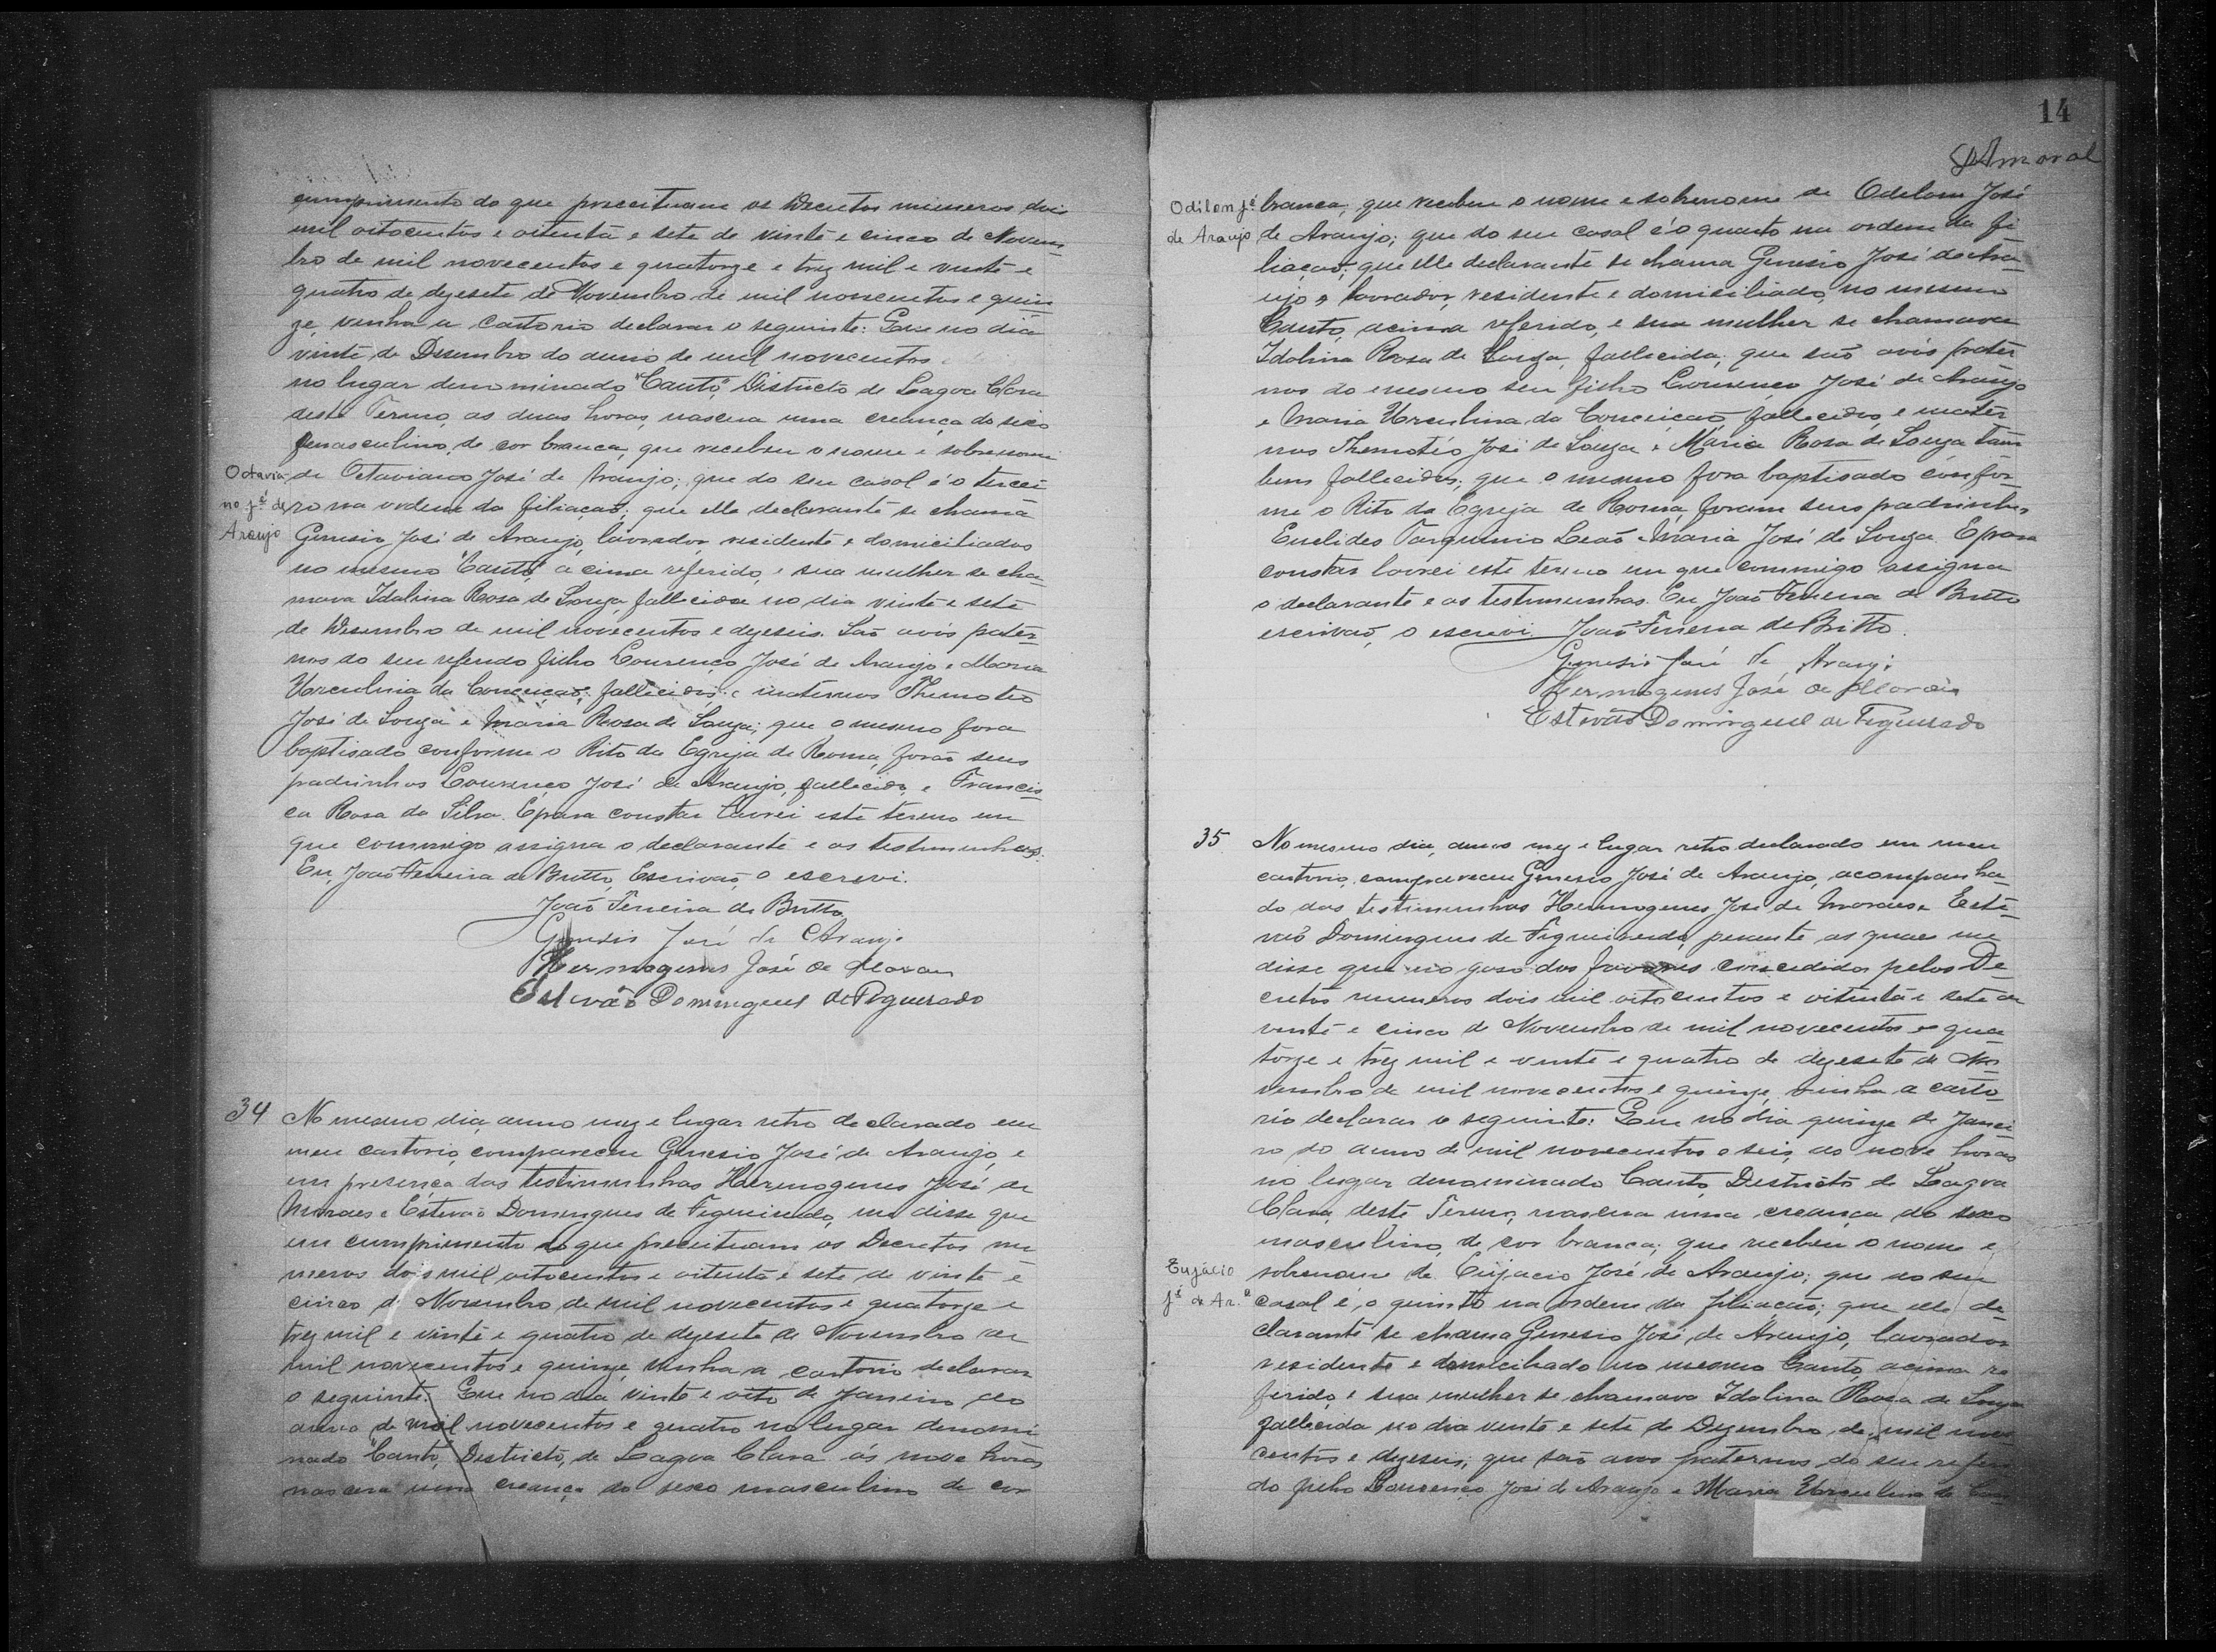 cumprimento do que preceituam os Decretos numeros dois
mil oitocentos e oitenta e sete de vinte e cinco de Novem-
bro de mil novecentos e quatorze e trez mil e vinte e
quatro de dezesete de Novembro de mil novecentos e quin
ze, vinha a cartorio declarar o seguinte: Que no dia
vinte de Desembro do anno de mil novecentos
no lugar denominado "Canto", Districto de Lagoa Clara
deste Termo, as duas horas, nascera uma creança do sexo
masculino, de cor branca, que recebeu o nome e sobrenome
Octavia-
no Jé de
Araujo
de Octaviano José de Araujo; que do seu casal é o tercei
ro na ordem da filiação; que elle declarante se chama
Genesio José de Araujo, lavrador, residente e domiciliados
no mesmo "Canto" a cima referido, e sua mulher se cha
mava Idalina Rosa de Souza, fallecida no dia vinte e sete
de Desembro de mil novecentos e dezeseis. São avós pater-
nos do seu referido filho Lourenço José de Araujo e Maria
Urculina da Conceição, fallecidos; e maternos Themoteo
José de Souza e Maria Rosa de Souza; que o mesmo fora
baptisado conforme o Rito da Egreja de Roma, forão seus
padrinhos Lourenço José de Araujo, fallecido, e Francis-
ca Rosa da Silva. E para constar lavrei este termo em
que commigo assigna o declarante e as testemunhas.
Eu, João Ferreira de Britto, Escrivão, o escrevi.
João Ferreira de Britto
Genesio José de Araujo
Hermogenes José de Moraes
Estevão Domingues de Figueredo
34 No mesmo dia, anno mez e lugar retro declarado em
meu cartorio, compareceu Genesio José de Araujo, e
em presença das testimunhas Hermogenes José de
Moraes e Estevão Domingues de Figueiredo, me disse que
em cumprimento do que preceituam os Decretos nu
meros dois mil oitocentos e oitenta e sete de vinte e
cinco de Novembro de mil novecentos e quatorze e
trez mil e vinte e quatro de dezesete de Novembro de
mil novecentos e quinze, vinha a cartorio declarar
o seguinte: Que no dia vinte e oito de Janeiro do
anno de mil novecentos e quatro no lugar denomi
nado "Canto", Destricto, de Lagoa Clara ás nove horas
nascera uma creança do sexo masculino de cor
14
Amaral
Odilon Jé
de Araujo
branca; que recebeu o nome e sobrenome de Odelom José
de Araujo; que do seu casal é o quarto na ordem da fi
liação; que elle declarante se chama Genesio José de Ara-
ujo, lavrador, residente e domiciliado, no mesmo
Canto, acima referido, e sua mulher se chamava
Idalina Rosa de Souza, fallecida; que são avós pater
nos do mesmo seu filho Lourenço José de Araujo
e Maria Urculina da Conceição, fallecidos, e mater
nos Themotéo José de Souza e Maria Rosa de Souza tam
bem fallecidos; que o mesmo fora baptisado confor-
me o Rito da Egreja de Roma, foram seus padrinhos,
Euclides Tarquinio Leão e Maria José de Souza. E para
constar lavrei este termo em que commigo assigna
o declarante e as testimunhas. Eu João Ferreira de Britto
escrivão, o escrevi. João Ferreira de Britto.
Genesio José de Araujo
Hermogenes José de Moraes
Estevão Domingues de Figueredo
35 No mesmo dia, anno mez e lugar retro declarado em meu
cartorio, compareceu Genesio José de Araujo, acompanha-
do das testimunhas Hermogenes José de Moraes e Este-
vão Domingues de Figueiredo, perante as quaes me
disse que no goso dos favores concedidos pelos De
cretos numeros dois mil oitocentos e oitenta e sete de
vinte e cinco de Novembro de mil novecentos e qua
torze e trez mil e vinte e quatro de dezesete de No-
vembro de mil novecentos e quinze, vinha a carto-
rio declarar o seguinte: Que no dia quinze de Janei-
ro do anno de mil novecentos e seis, as nove horas
no lugar denominado Canto, Destricto de Lagoa
Clara, deste Termo, nascera uma creança do sexo
masculino, de cor branca; que recebeu o nome e
Eujácio
Jé de Ar.º
sobrenome de Eujacio José de Araujo; que do seu
casal é, o quinto na ordem da filiação; que elle de-
clarante se chama Genesio José de Araujo, lavrador
residente e domiciliado no mesmo Canto, acima re
ferido, e sua mulher se chamava Idalina Rosa de Souza
fallecida no dia vinte e sete de Dezembro de mil nove
centos e dezeseis; que são avos paternos do seu referi
do filho Lourenço José de Araujo e Maria Urculina da Con-